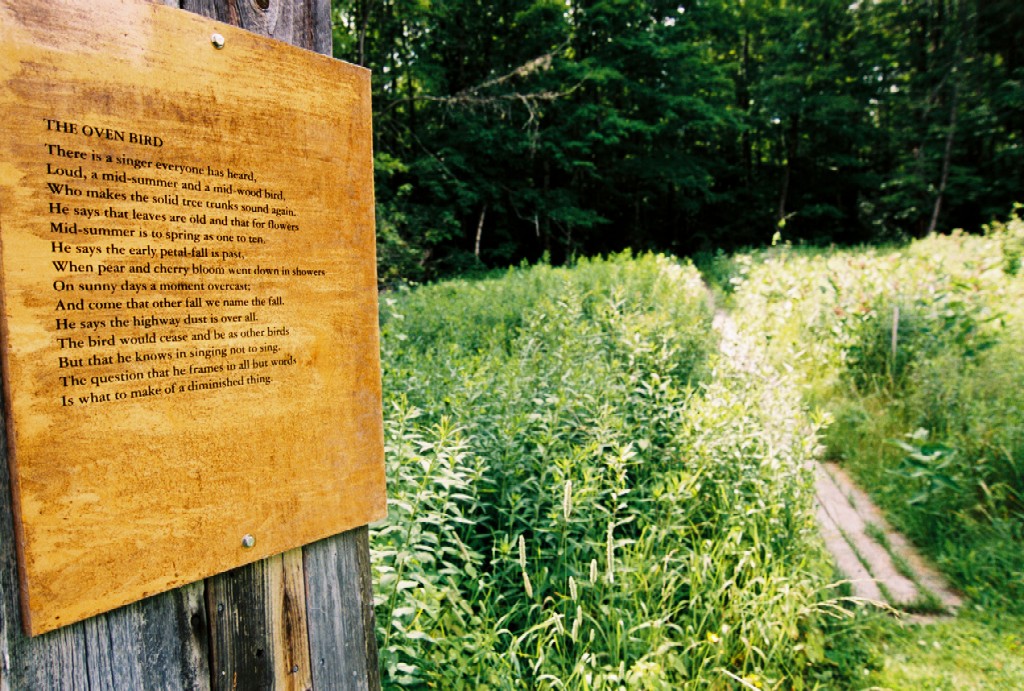 THE OVEN BIRD
There is a singer everyone has heard,
Loud, a mid-summer and a mid-wood bird,
Who makes the solid tree trunks sound again.
He says that leaves are old and that for flowers
Mid-summer is to spring as one to ten.
He says the early petal-fall is past,
When pear and cherry bloom went down in showers
On sunny days a moment overcast;
And come that other fall we name the fall.
He says the highway dust is over all.
The bird would cease and be as other birds
But that he knows in singing not to sing.
The question that he frames in all but words
Is what to make of a diminished thing.